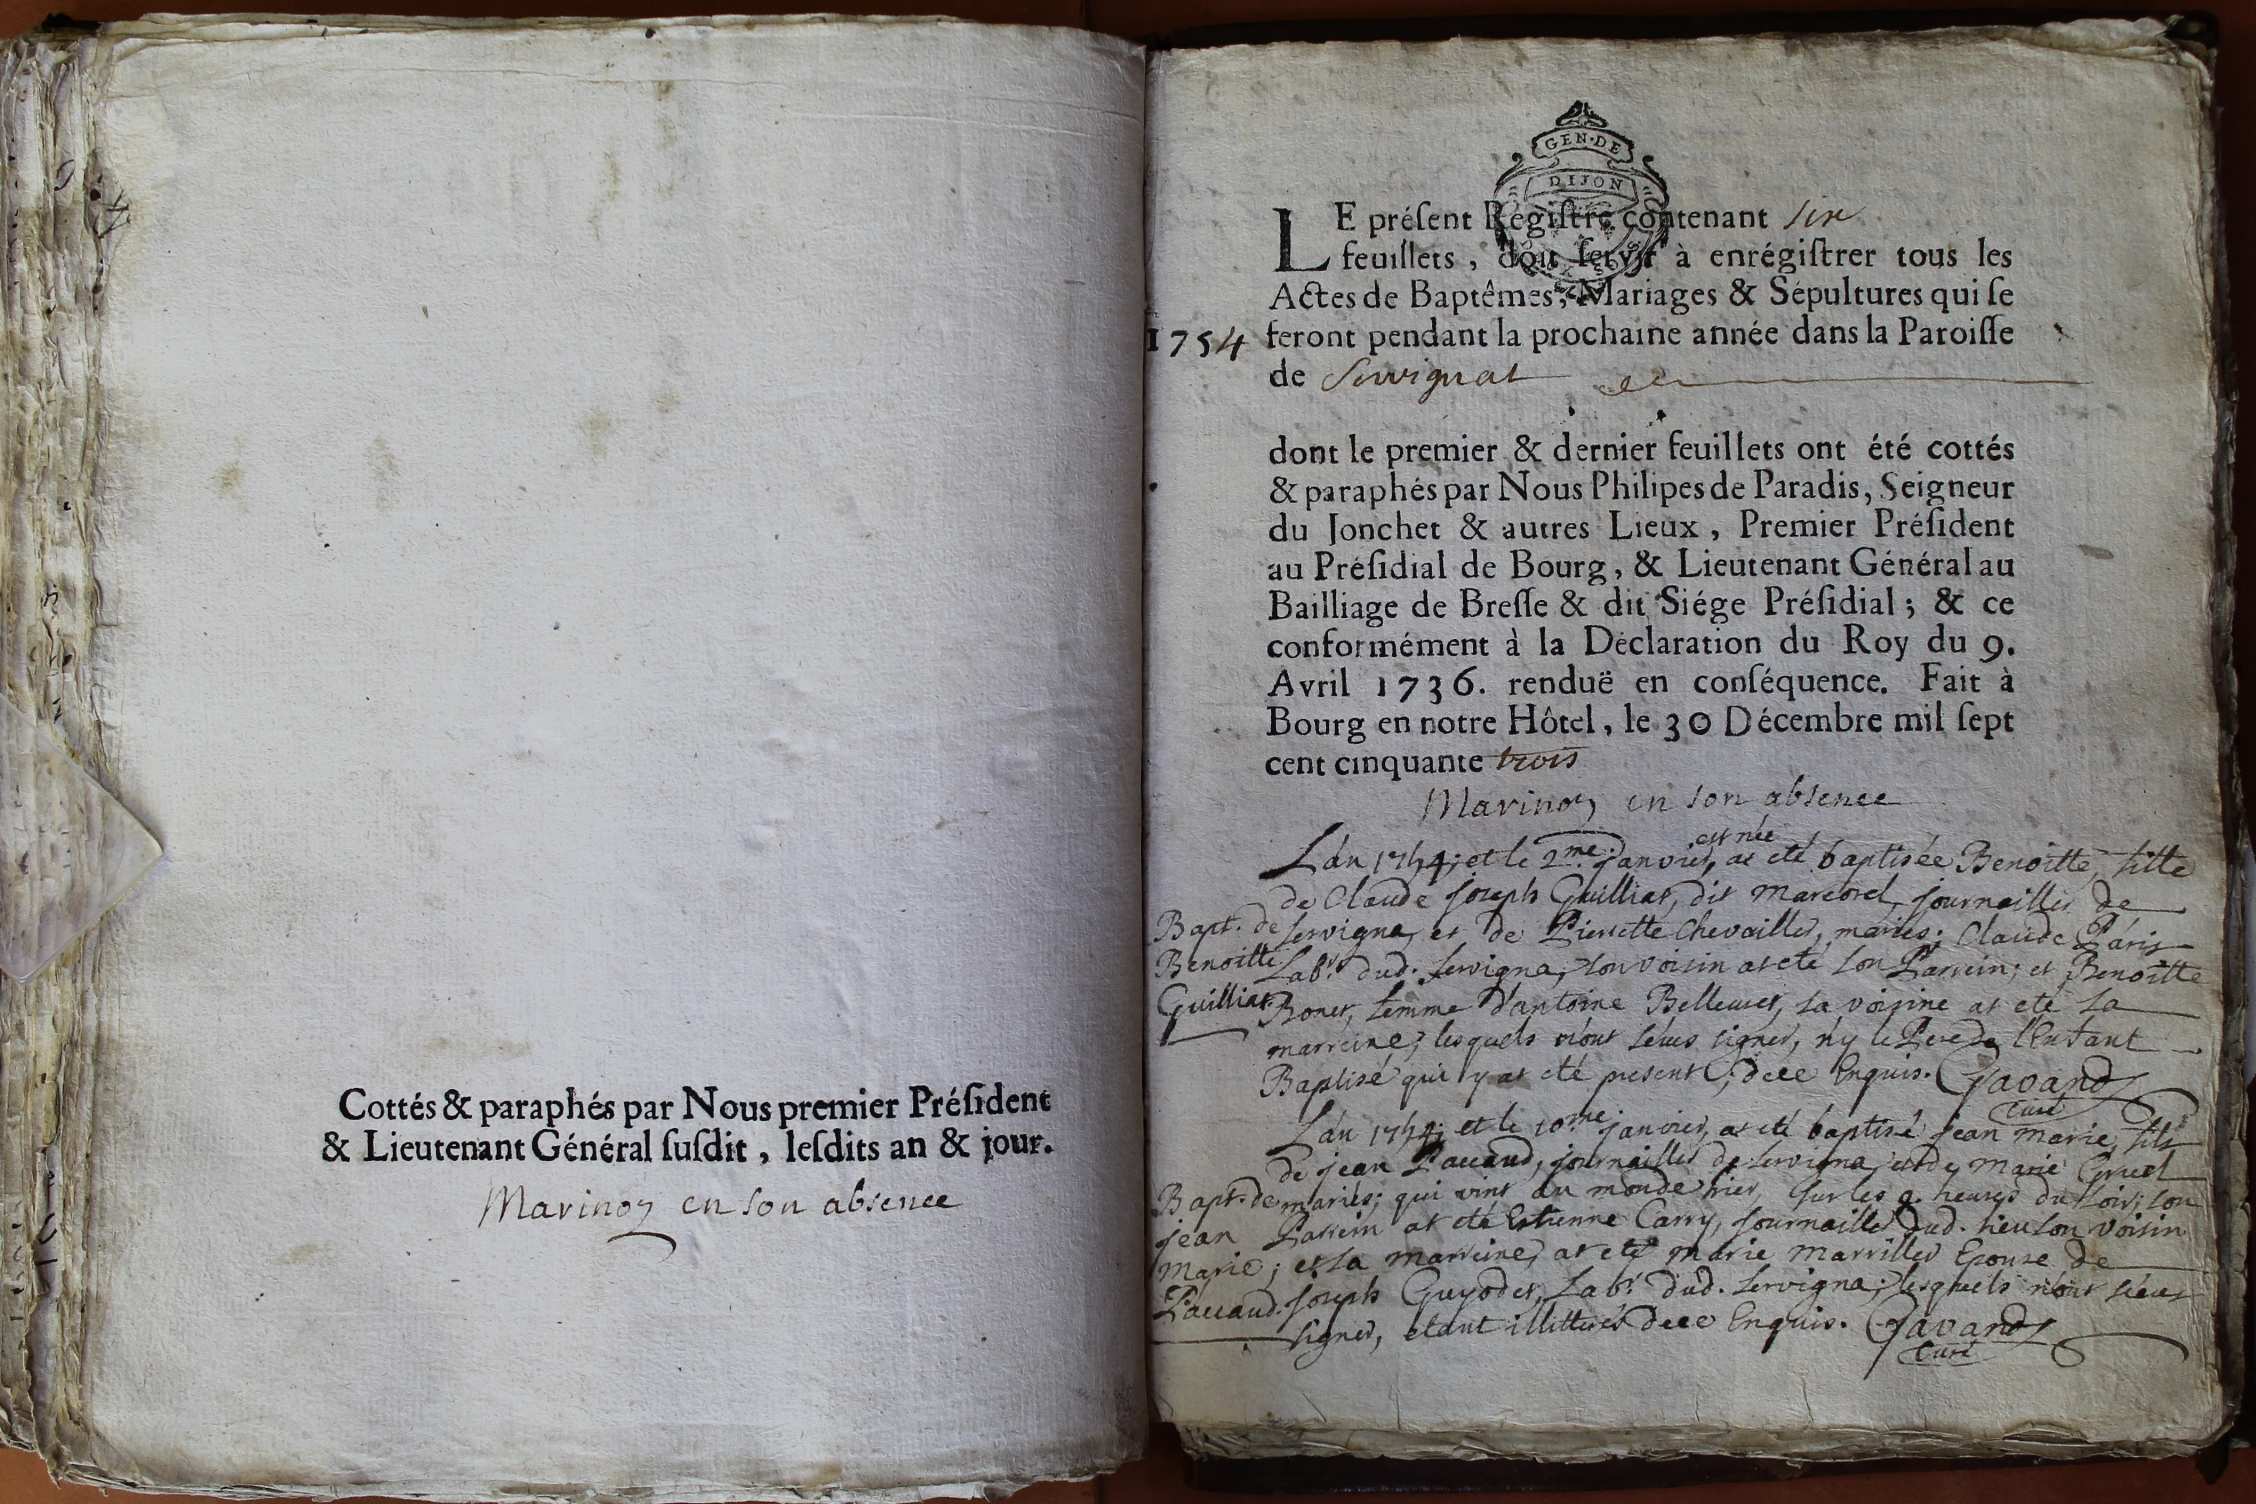 Cottés & paraphés par Nous premier Préſident
& Lieutenant Général ſuſdit, leſdits an & jour.
Marinoz en son absence
GEN·DE
DIJON
LE préſent Regiſtre contenant six
feuillets, doit ſervir à enrégiſtrer tous les
Actes de Baptêmes, Mariages & Sépultures qui ſe
1754
feront pendant la prochaine année dans la Paroiſſe
de Servignat
dont le premier & dernier feuillets ont été cottés
& paraphés par Nous Philipes de Paradis, Seigneur
du Jonchet & autres Lieux, Premier Préſident
au Préſidial de Bourg, & Lieutenant Général au
Bailliage de Breſſe & dit Siége Préſidial; & ce
conformément à la Déclaration du Roy du 9.
Avril 1736. renduë en conſéquence. Fait à
Bourg en notre Hôtel, le 30 Décembre mil ſept
cent cinquante trois
Marinoz en son absence
est née
L'an 1754; et le 2me. janvier, at eté baptisée Benoitte, fille
de Claude joseph Guilliat, dit marcorel, journaillier de
Servigna, et de Pierrette Chevaillier, mariés; Claude Páris
Labr. dud. Servigna, son voisin at eté son Parrein; et Benoitte
Bonet, femme d'antoine Belleuret, sa voisine at eté sa
marreine; lesquels n'ont séeus signer, n'y le Pere de l'Enfant
Baptisé qui y at eté present, de ce Enquis. Gavand
Curé
Bapt. de
Benoitte
Guilliat.
L'an 1754; et le 10me. janvier, at eté baptisé jean marie, fils
de jean Paccaud, journaillier de Servigna, et de marie Gruel
mariés; qui vint au monde hier, sur les 9. heures du soir; son
Parrein at eté Estienne Carry, journaillier dud. lieu son voisin
; et sa marreine, at eté marie marillier Epouse de
joseph Guyodet, Labr. dud. Servigna; lesquels n'ont séeus
signer, etant illitterés de ce Enquis. Gavand
Curé
Bapt. de
jean
marie
Paccaud.